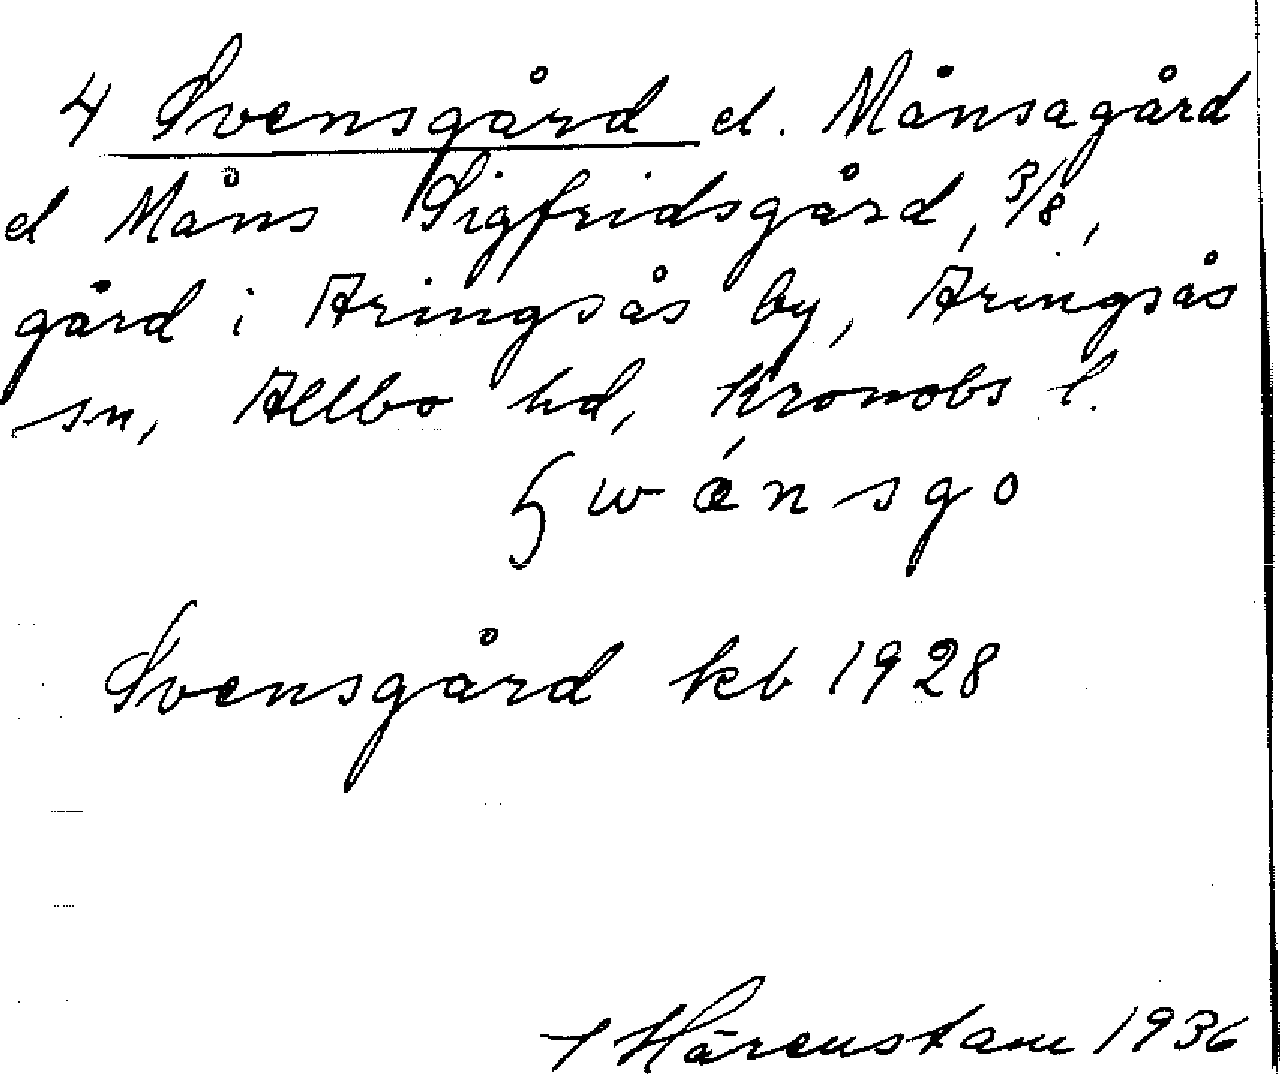 4 Svensgård el. Månsagård
el Måns Sigfridsgård, 3/8,
gård i Aringsås by, Aringsås
sn, Allbo hd, Kronobs l.
Svensgård kb 1928
Härenstam 1936